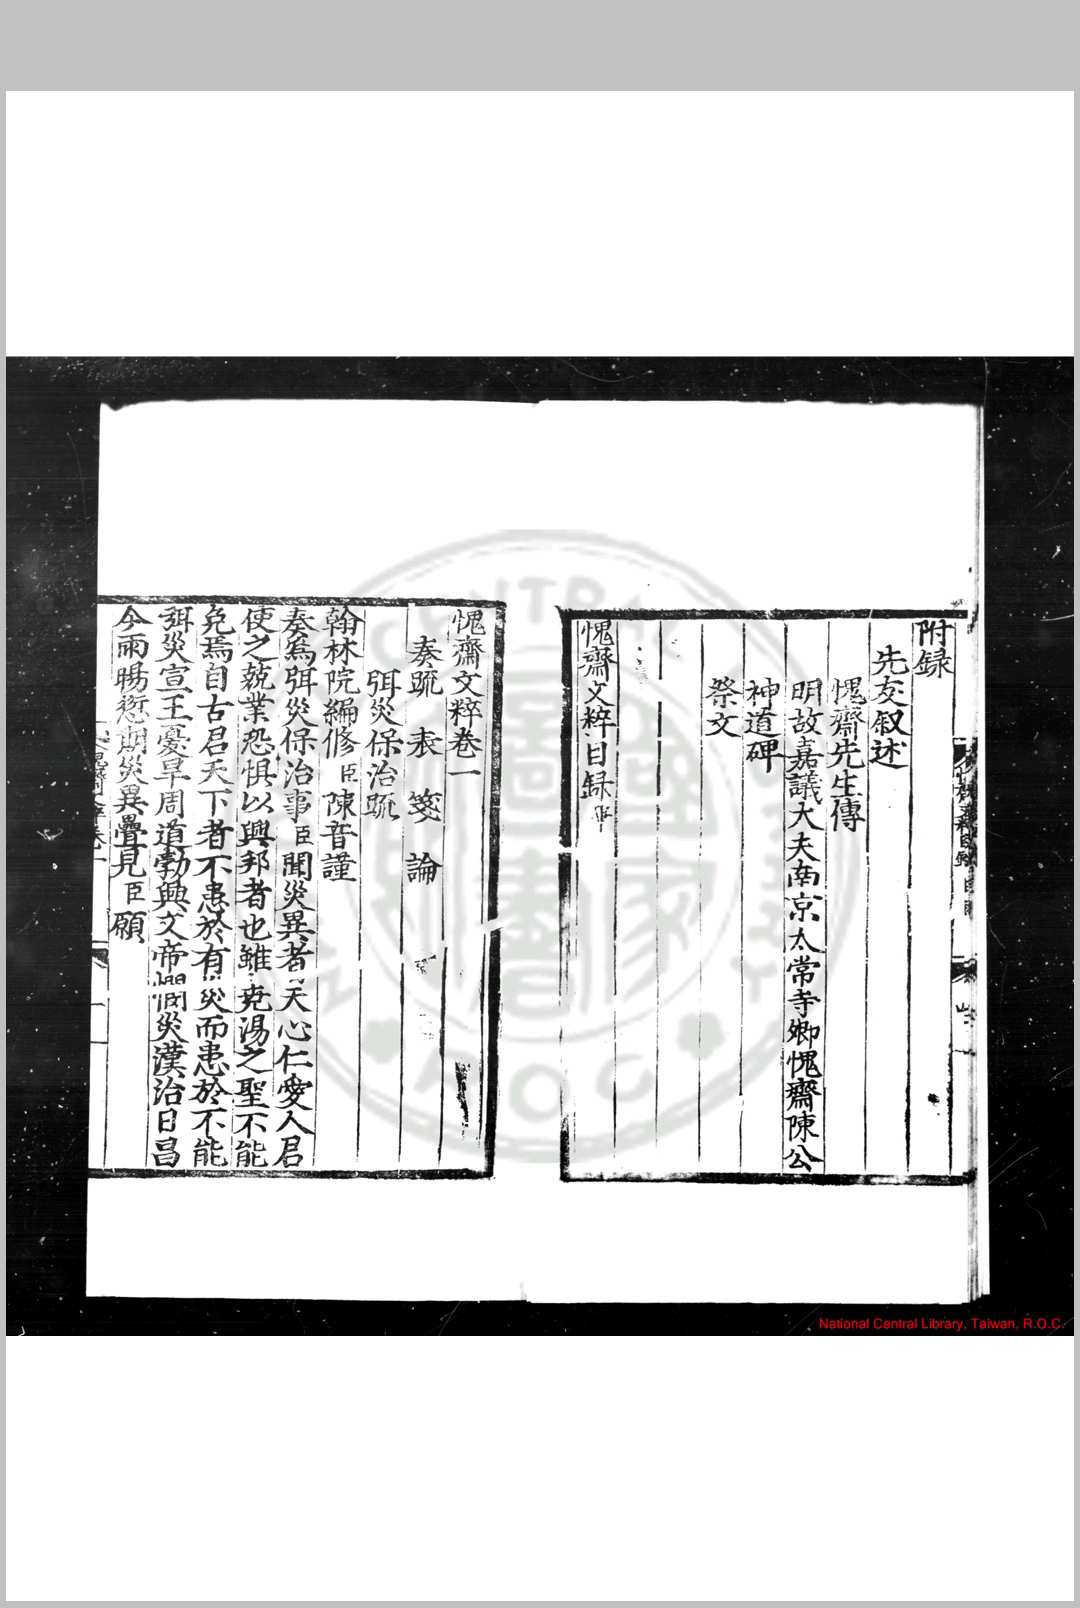 附録
先友叙述
愧齋先生傳
明故嘉議大夫南京太常寺卿愧齋陳公
神道碑
祭文
愧齋文粹目録
愧齋文粹卷一
奏疏 表 箋 論
弭災保治疏
翰林院編修臣陳音謹
奏爲弭災保治事臣聞災異者天心仁愛人君
使之兢業恐惧以興邦者也雖堯湯之聖不能
免焉自古君天下者不患於有災而患於不能
弭災宣王憂旱周道勃興文帝憫災漢治日昌
今雨暘愆期災異疊見臣願
National Central Library, Taiwan, R.O.C.